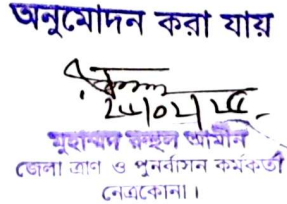 অনুমোদন করা যায়
মুহাম্মদ রুহুল আমীন
জেলা ত্রাণ ও পুনর্বাসন কর্মকর্তা
নেত্রকোনা।